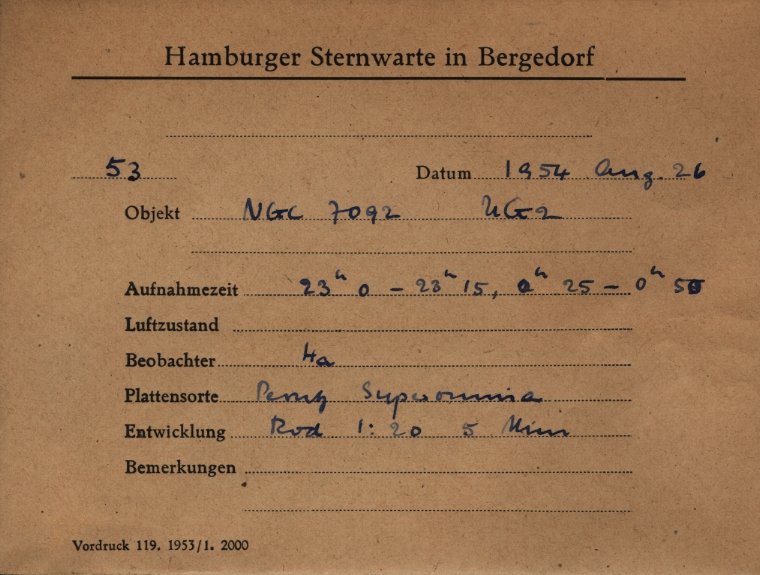 Hamburger Sternwarte in Bergedorf
53 Datum 1954 Aug. 26
Objekt NGC 7092 UG2
Aufnahmezeit 23ʰ 0 – 23ʰ 15, 0ʰ 25 – 0ʰ 50
Luftzustand
Beobachter Ha
Plattensorte Perutz
Entwicklung Rod 1:20 5 Min
Bemerkungen
Vordruck 119. 1953/1. 2000